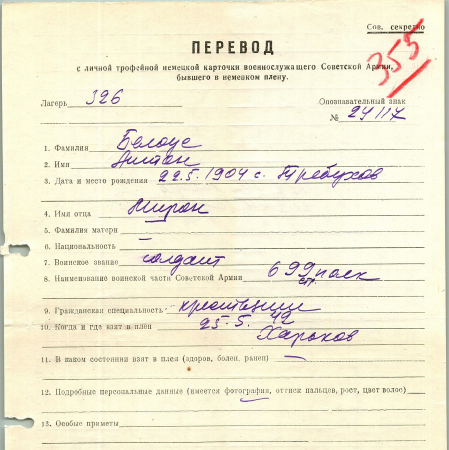 Сов. секретно
353
ПЕРЕВОД
с личной трофейной немецкой карточки военнослужащего Советской Армии,
бывшего в немецком плену.
Лагерь 326
Опознавательный знак
№ 24117
1. Фамилия Белоус
2. Имя Антон
3. Дата и место рождения 22.5.1904 с. Требухов
4. Имя отца Мирон
5. Фамилия матери
6. Национальность —
7. Воинское звание солдат
8. Наименование воинской части Советской Армии 699 полк
9. Гражданская специальность крестьянин
10. Когда и где взят в плен 25.5.42
Харьков
11. В каком состоянии взят в плен (здоров, болен, ранен) —
12. Подробные персональные данные (имеется фотография, оттиск пальцев, рост, цвет волос)
13. Особые приметы